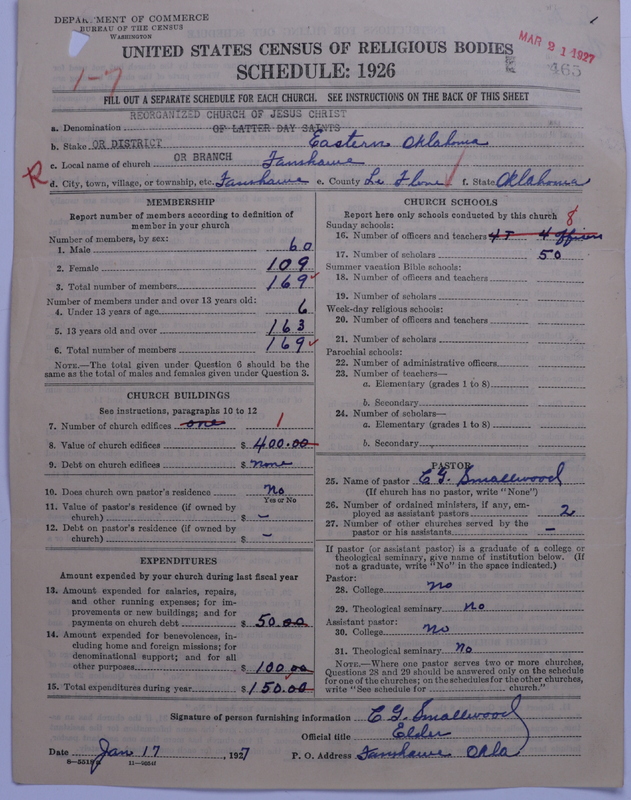 DEPARTMENT OF COMMERCE
BUREAU OF THE CENSUS
WASHINGTON
MAR 21 1927
465
1-7
UNITED STATES CENSUS OF RELIGIOUS BODIES
SCHEDULE: 1926
FILL OUT A SEPARATE SCHEDULE FOR EACH CHURCH. SEE INSTRUCTIONS ON THE BACK OF THIS SHEET
REORGANIZED CHURCH OF JESUS CHRIST
a. Denomination OF LATTER DAY SAINTS
b. Stake OR DISTRICT Eastern Oklahoma
c. Local name of church OR BRANCH Fanshawe
R d. City, town, village, or township, etc. Fanshawe e. County Le Flore f. State Oklahoma
MEMBERSHIP
Report number of members according to definition of
member in your church
Number of members, by sex:
1. Male 60
2. Female 109
3. Total number of members 169
Number of members under and over 13 years old:
4. Under 13 years of age 6
5. 13 years old and over 163
6. Total number of members 169
NOTE.—The total given under Question 6 should be the
same as the total of males and females given under Question 3.
CHURCH BUILDINGS
See instructions, paragraphs 10 to 12
7. Number of church edifices one 1
8. Value of church edifices $ 400.00
9. Debt on church edifices $ none
10. Does church own pastor's residence No
Yes or No
11. Value of pastor's residence (if owned by
church) $ —
12. Debt on pastor's residence (if owned by
church) $ —
EXPENDITURES
Amount expended by your church during last fiscal year
13. Amount expended for salaries, repairs,
and other running expenses; for im-
provements or new buildings; and for
payments on church debt $ 50.00
14. Amount expended for benevolences, in-
cluding home and foreign missions; for
denominational support; and for all
other purposes $ 100.00
15. Total expenditures during year $ 150.00
CHURCH SCHOOLS
Report here only schools conducted by this church
Sunday schools: 8
16. Number of officers and teachers 4 T 4 officers
17. Number of scholars 50
Summer vacation Bible schools:
18. Number of officers and teachers
19. Number of scholars
Week-day religious schools:
20. Number of officers and teachers
21. Number of scholars
Parochial schools:
22. Number of administrative officers
23. Number of teachers—
a. Elementary (grades 1 to 8)
b. Secondary
24. Number of scholars—
a. Elementary (grades 1 to 8)
b. Secondary
PASTOR
25. Name of pastor C G. Smallwood
(If church has no pastor, write "None")
26. Number of ordained ministers, if any, em-
ployed as assistant pastors 2
27. Number of other churches served by the
pastor or his assistants —
If pastor (or assistant pastor) is a graduate of a college or
theological seminary, give name of institution below. (If
not a graduate, write "No" in the space indicated.)
Pastor:
28. College No
29. Theological seminary No
Assistant pastor:
30. College No
31. Theological seminary No
NOTE.—Where one pastor serves two or more churches,
Questions 28 and 29 should be answered only on the schedule
for one of the churches; on the schedules for the other churches,
write "See schedule for church."
Signature of person furnishing information C G. Smallwood
Official title Elder
Date Jan 17, 1927 P. O. Address Fanshawe Okla